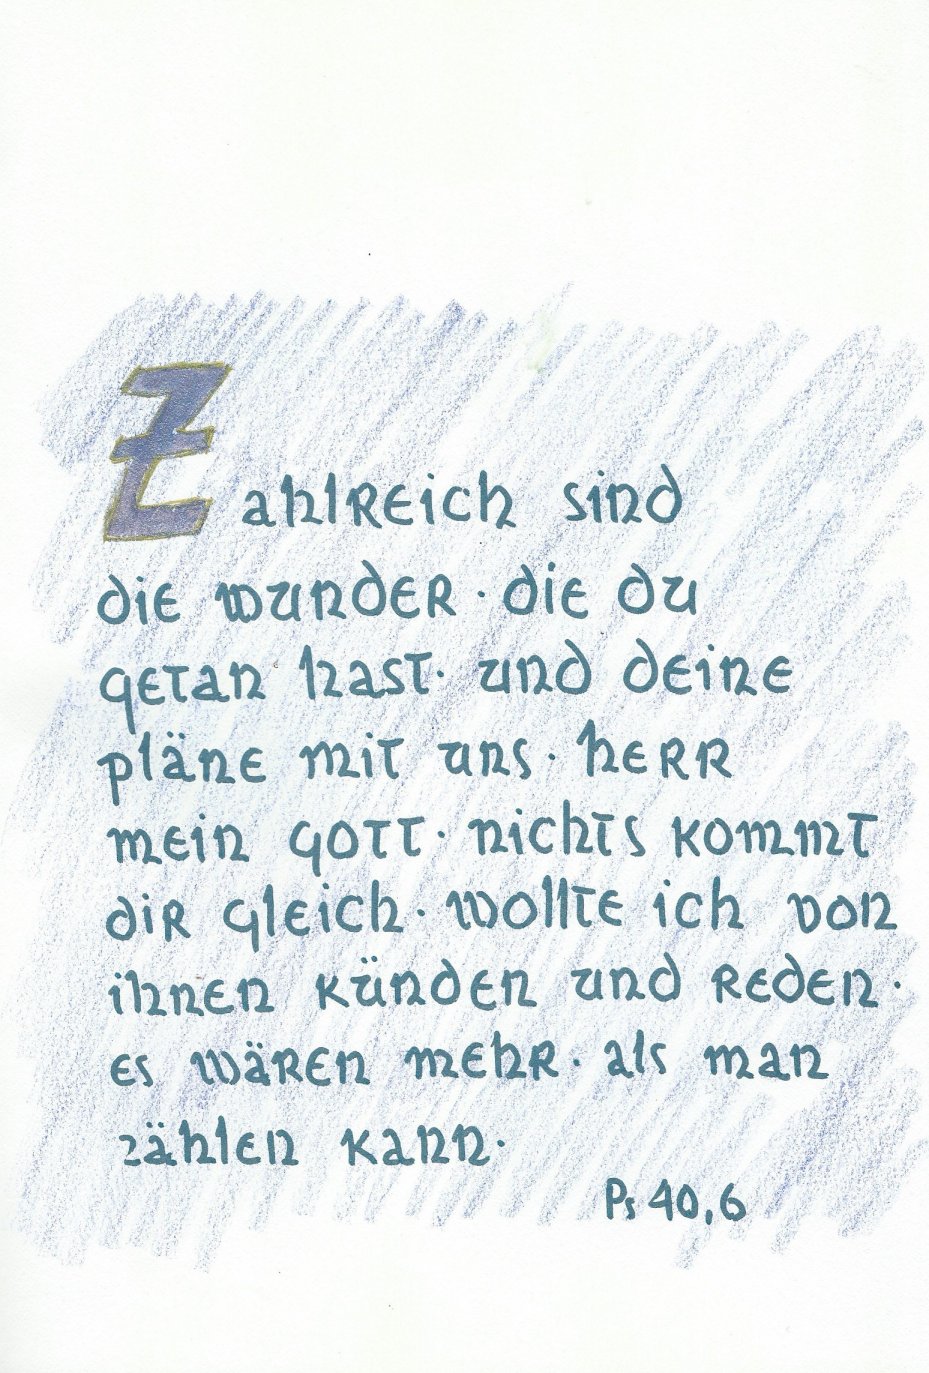 Zahlreich sind
die wunder · die du
getan hast · und deine
pläne mit uns · herr
mein gott · nichts kommt
dir gleich · wollte ich von
ihnen künden und reden ·
es wären mehr · als man
zählen kann ·
Ps 40,6